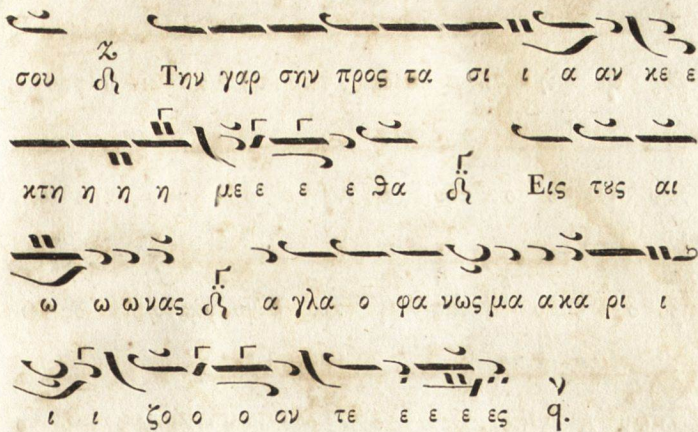 σου Την γαρ σην προς τα σι ι α αν κε ε
κτη η η η με ε ε ε θα Εις τȣς αι
ω ω ω νας α γλα ο φα νως μα α κα ρι ι ι
ι ι ζο ο ο ον τε ε ε ε ες